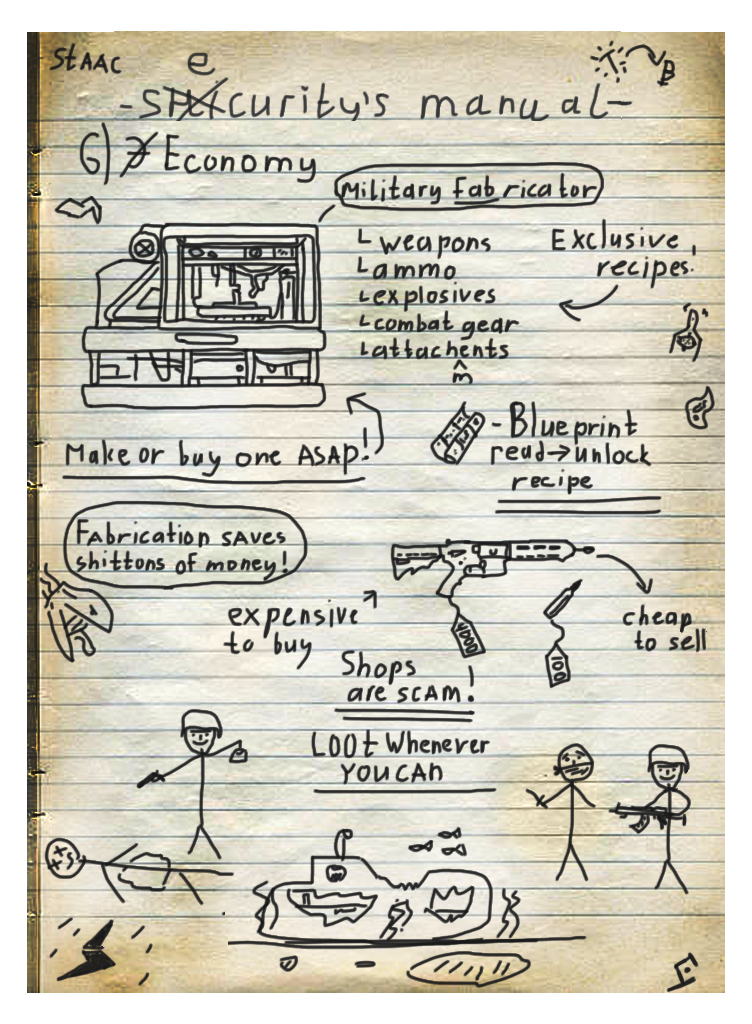 StAAC
e
-SHIcurity's manual-
6) 7 Economy
Military Fabricator
└ weapons
└ ammo
└ explosives
└ combat gear
└ attachents
^
m
Exclusive
recipes
Make or buy one ASAP!
- Blueprint
read→unlock
recipe
Fabrication saves
shittons of money!
expensive
to buy
1000
100
cheap
to sell
Shops
are SCAM!
Loot Whenever
you can